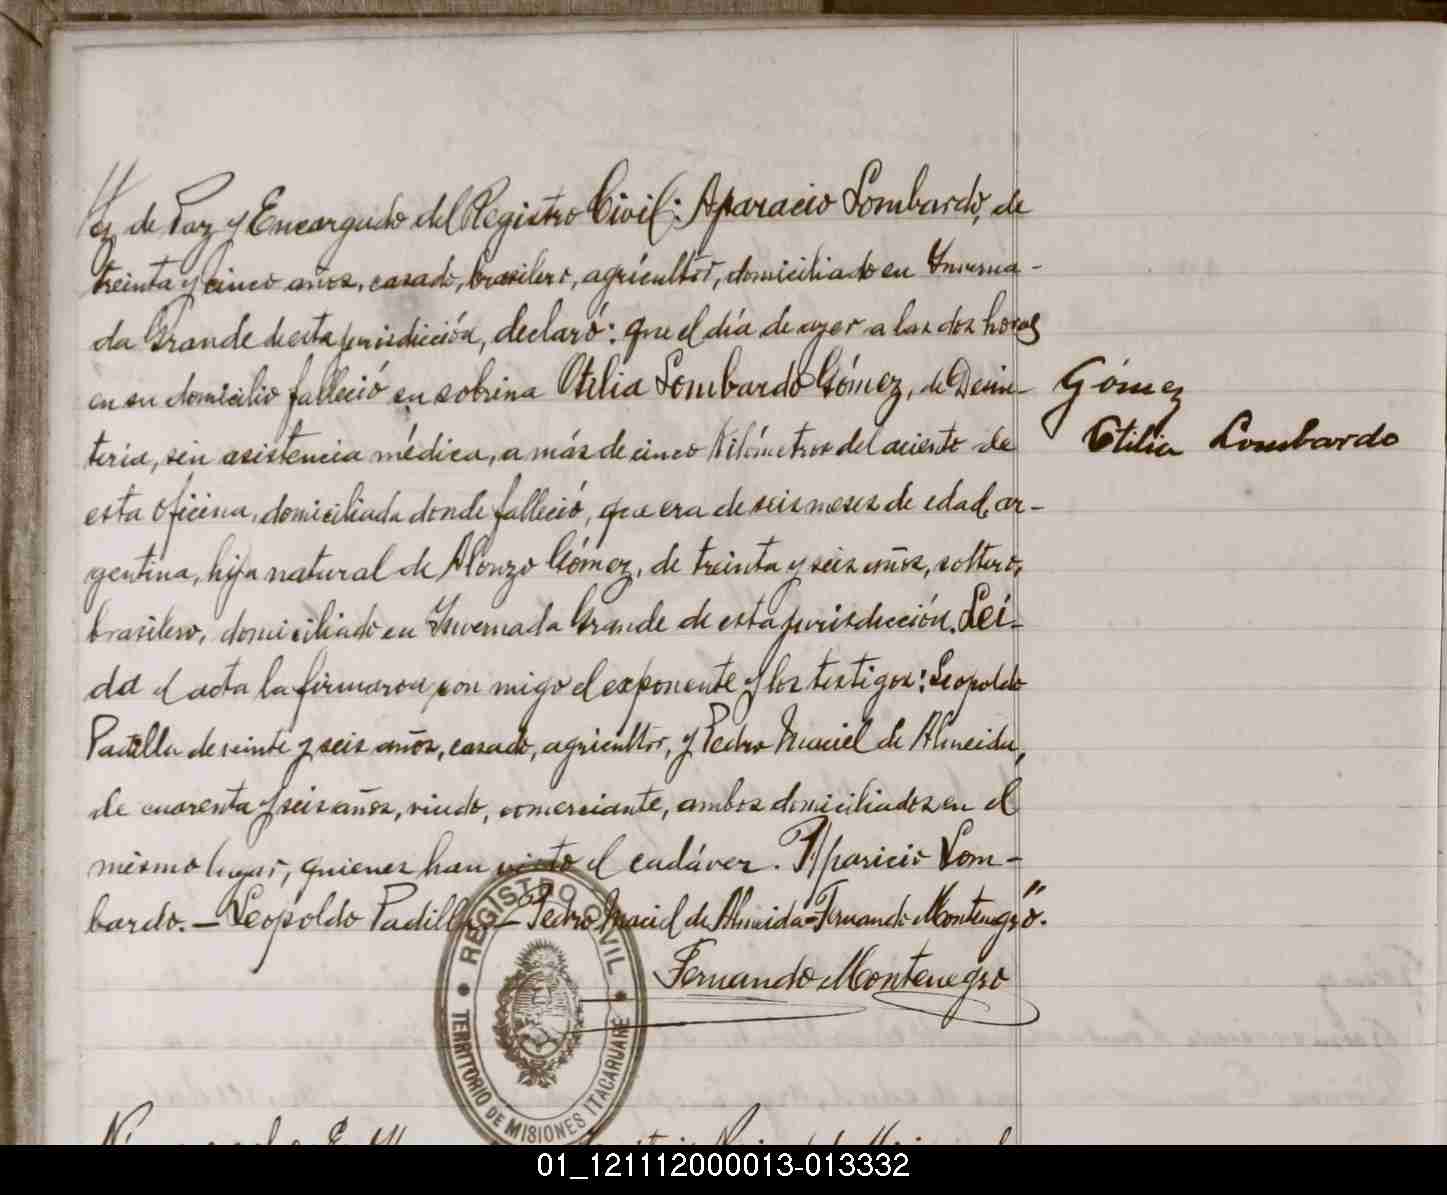 ez de Paz y Encargado del Registro Civil: Aparacio Lombardo, de
treinta y cinco años, casado, brasilero, agricultor, domiciliado en Inverna-
da Grande de esta jurisdicción, declaró: que el día de ayer a las dos horas
en su domicilio falleció su sobrina Otilia Lombardo Gómez, de Desin-
teria, sin asistencia médica, a más de cinco kilómetros del aciento de
esta oficina, domiciliada donde falleció, que era de seis meses de edad, ar-
gentina, hija natural de Alonzo Gómez, de treinta y seis años, soltero,
brasilero, domiciliado en Invernada Grande de esta jurisdicción. Leí-
da el acta la firmaron con migo el exponente y los testigos: Leopoldo
Padilla de veinte y seis años, casado, agricultor, y Pedro Maciel de Almeida,
de cuarenta y seis años, viudo, comerciante, ambos domiciliados en el
mismo lugar, quienes han visto el cadáver. Aparicio Lom-
bardo. — Leopoldo Padilla — Pedro Maciel de Almeida - Fernando Montenegro".
Fernando Montenegro
Gómez
Otilia Lombardo
REGISTRO CIVIL
TERRITORIO DE MISIONES ITACARUARE
01_121112000013-013332